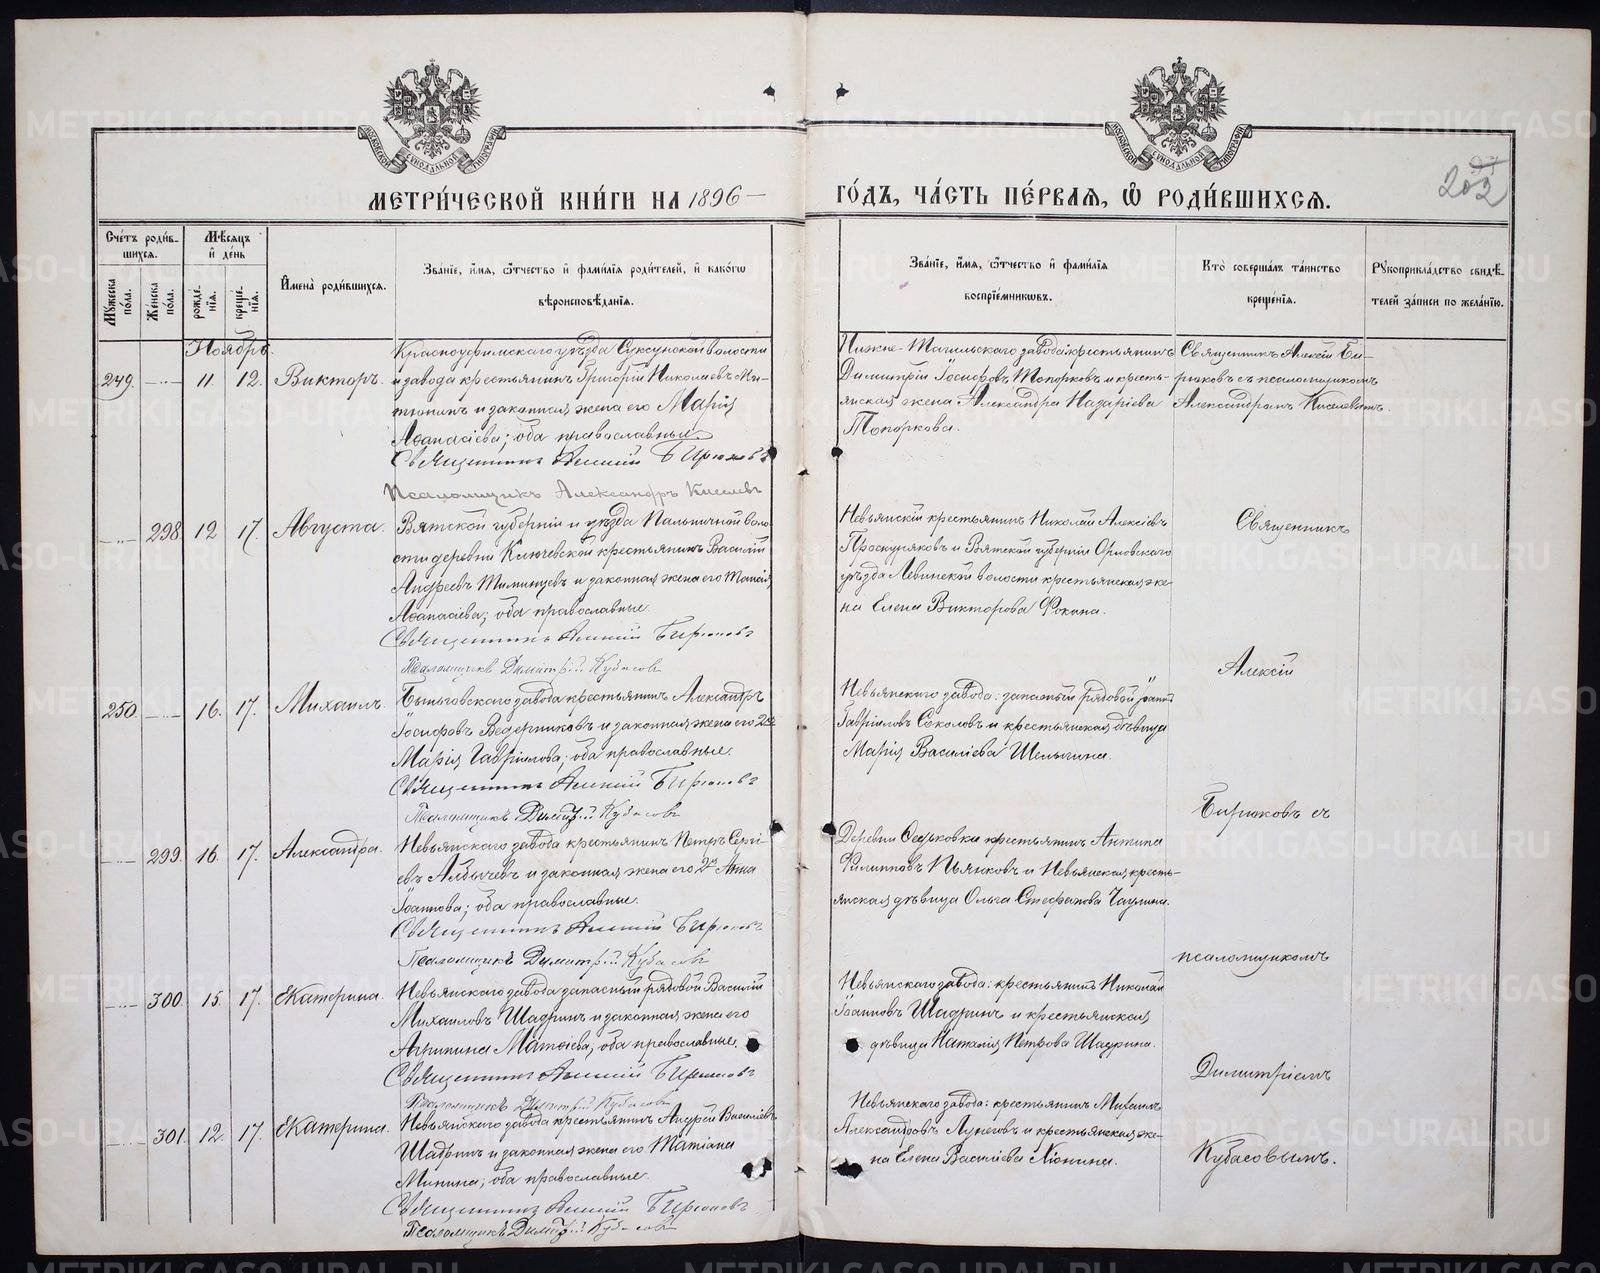 МЕТРИ́ЧЕСКОЙ КНИ́ГИ НА 1896 —
ГО́ДЪ, ЧА́СТЬ ПЕ́РВАЯ, Ѽ РОДИ́ВШИХСЯ.
202
Сче́тъ роди́в-
шихся.
Мꙋ́жеска по́ла.
Же́нска по́ла.
Мѣ́сяцъ
и҆ де́нь
рожде́-
нїя.
креще́-
нїя.
И҆мена̀ роди́вшихся.
Зва́нїе, и҆́мя, ѻ҆́тчество и҆ фами́лїя роди́телей, и҆ како́гѡ
вѣроисповѣ́данїя.
Зва́нїе, и҆́мя, ѻ҆́тчество и҆ фами́лїя
воспрїе́мникѡвъ.
Кто̀ соверша́лъ та́инство
креще́нїя.
Рꙋкоприкла́дство свидѣ́-
телей за́писи по жела́нїю.
Ноябрь.
249. — 11. 12. Викторъ.
Красноуфимскаго уѣзда Суксунской волости
и завода крестьянинъ Григорій Николаевъ Ми-
тюнинъ и законная жена его Марія
Аѳанасіева; оба православные.
Священникъ Алексій Бирюковъ
Псаломщикъ Александръ Киселевъ
Нижне-Тагильскаго завода: крестьянинъ
Димитрій Іосифовъ Топорковъ и кресть-
янская жена Александра Назаріева
Топоркова.
Священникъ Алексій Би-
рюковъ съ псаломщикомъ
Александромъ Киселевымъ.
— 298. 12. 17. Августа.
Вятской губерніи и уѣзда Пальничной воло-
сти деревни Ключевской крестьянинъ Василій
Андреевъ Тиминцевъ и законная жена его Таисія
Аѳанасіева; оба православные.
Священникъ Алексій Бирюковъ
Псаломщикъ Димитрій Кубасовъ
Невьянскій крестьянинъ Николай Алексіевъ
Проскуряковъ и Вятской губерніи Орловскаго
уѣзда Левинской волости крестьянская же-
на Елена Викторова Фокина.
Священникъ
250. — 16. 17. Михаилъ.
Быньговскаго завода крестьянинъ Александръ
Іосифовъ Ведерниковъ и законная жена его 2ая
Марія Гавріилова; оба православные.
Священникъ Алексій Бирюковъ
Псаломщикъ Димитрій Кубасовъ
Невьянскаго завода: запасный рядовой Іоаннъ
Гавріиловъ Соколовъ и крестьянская дѣвица
Марія Василіева Шелыгина.
Алексій
— 299. 16. 17. Александра.
Невьянскаго завода крестьянинъ Петръ Сергі-
евъ Албычевъ и законная жена его 2ая Анна
Іоаннова; оба православные.
Священникъ Алексій Бирюковъ
Псаломщикъ Димитрій Кубасовъ
Деревни Ѳедьковки крестьянинъ Антипа
Филипповъ Пьянковъ и Невьянская кресть-
янская дѣвица Ольга Стефанова Чаузина.
Бирюковъ съ
— 300. 15. 17. Екатерина.
Невьянскаго завода запасный рядовой Василій
Михаиловъ Шадринъ и законная жена его
Агрипина Матѳіева; оба православные.
Священникъ Алексій Бирюковъ
Псаломщикъ Димитрій Кубасовъ
Невьянскаго завода: крестьянинъ Николай
Іоанновъ Шадринъ и крестьянская
дѣвица Наталія Петрова Шадрина.
псаломщикомъ
— 301. 12. 17. Екатерина.
Невьянскаго завода крестьянинъ Андрей Василіевъ
Шадринъ и законная жена его Татіана
Минина; оба православные.
Священникъ Алексій Бирюковъ
Псаломщикъ Димитрій Кубасовъ
Невьянскаго завода: крестьянинъ Михаилъ
Александровъ Лунеговъ и крестьянская же-
на Елена Василіева Нюнина.
Димитріемъ
Кубасовымъ.
METRIKI.GASO-URAL.RU